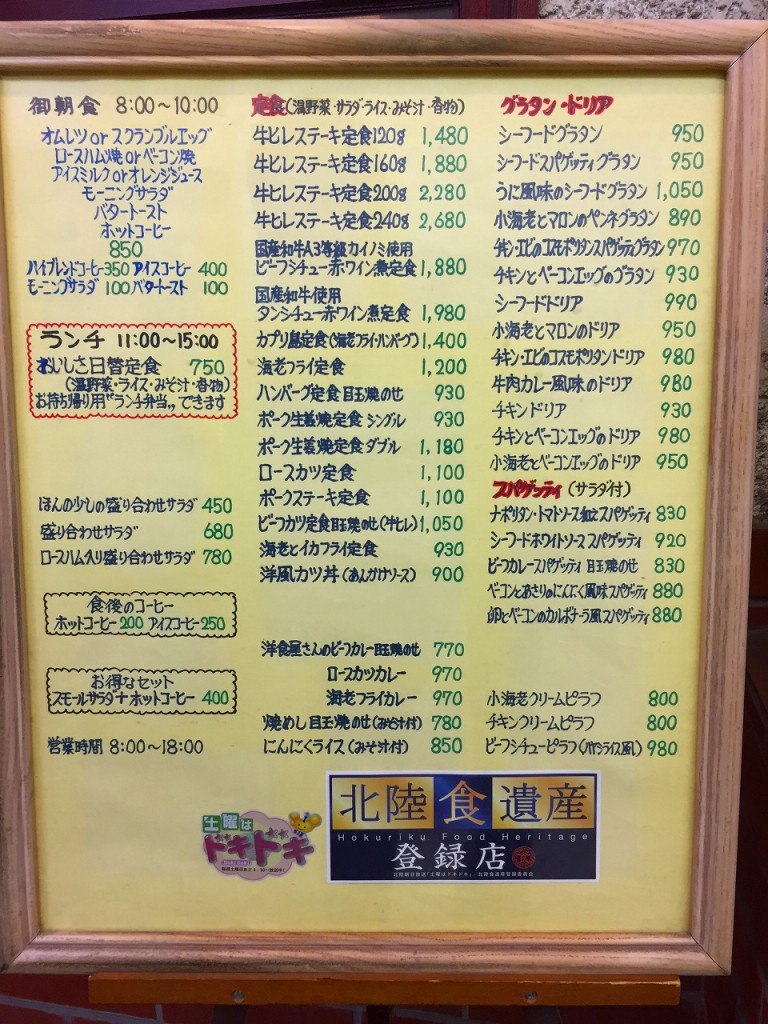 御朝食 8:00～10:00
オムレツ or スクランブルエッグ
ロースハム焼 or ベーコン焼
アイスミルク or オレンジジュース
モーニングサラダ
バタートースト
ホットコーヒー
850
ハイブレンドコーヒー350 アイスコーヒー 400
モーニングサラダ 100 バタートースト 100
ランチ 11:00～15:00
おいしさ日替定食 750
(温野菜・ライス・みそ汁・香物)
お持ち帰り用"ランチ弁当"できます
ほんの少しの盛り合わせサラダ 450
盛り合わせサラダ 680
ロースハム入り盛り合わせサラダ 780
食後のコーヒー
ホットコーヒー200 アイスコーヒー250
お得なセット
スモールサラダ+ホットコーヒー 400
営業時間 8:00～18:00
定食(温野菜・サラダ・ライス・みそ汁・香物)
牛ヒレステーキ定食120g 1,480
牛ヒレステーキ定食160g 1,880
牛ヒレステーキ定食200g 2,280
牛ヒレステーキ定食240g 2,680
国産和牛A3等級カイノミ使用
ビーフシチュー赤ワイン煮定食 1,880
国産和牛使用
タンシチュー赤ワイン煮定食 1,980
カプリ島定食(海老フライ・ハンバーグ) 1,400
海老フライ定食 1,200
ハンバーグ定食 目玉焼のせ 930
ポーク生姜焼定食 シングル 930
ポーク生姜焼定食 ダブル 1,180
ロースカツ定食 1,100
ポークステーキ定食 1,100
ビーフカツ定食目玉焼のせ(牛ヒレ) 1,050
海老とイカフライ定食 930
洋風カツ丼(あんかけソース) 900
洋食屋さんのビーフカレー目玉焼のせ 770
ロースカツカレー 970
海老フライカレー 970
焼めし目玉焼のせ(みそ汁付) 780
にんにくライス(みそ汁付) 850
グラタン・ドリア
シーフードグラタン 950
シーフードスパゲッティグラタン 950
うに風味のシーフードグラタン 1,050
小海老とマロンのペンネグラタン 890
チキン・エビのコスモポリタンスパゲッティグラタン 970
チキンとベーコンエッグのグラタン 930
シーフードドリア 990
小海老とマロンのドリア 950
チキン・エビのコスモポリタンドリア 980
牛肉カレー風味のドリア 980
チキンドリア 930
チキンとベーコンエッグのドリア 980
小海老とベーコンエッグのドリア 950
スパゲッティ(サラダ付)
ナポリタン・トマトソース和えスパゲッティ 830
シーフードホワイトソーススパゲッティ 920
ビーフカレースパゲッティ 目玉焼のせ 830
ベーコンとあさりのにんにく風味スパゲッティ 880
卵とベーコンのカルボナーラ風スパゲッティ 880
小海老クリームピラフ 800
チキンクリームピラフ 800
ビーフシチューピラフ(ハヤシライス風) 980
土曜は
ドキドキ
北陸食遺産
Hokuriku Food Heritage
登録店